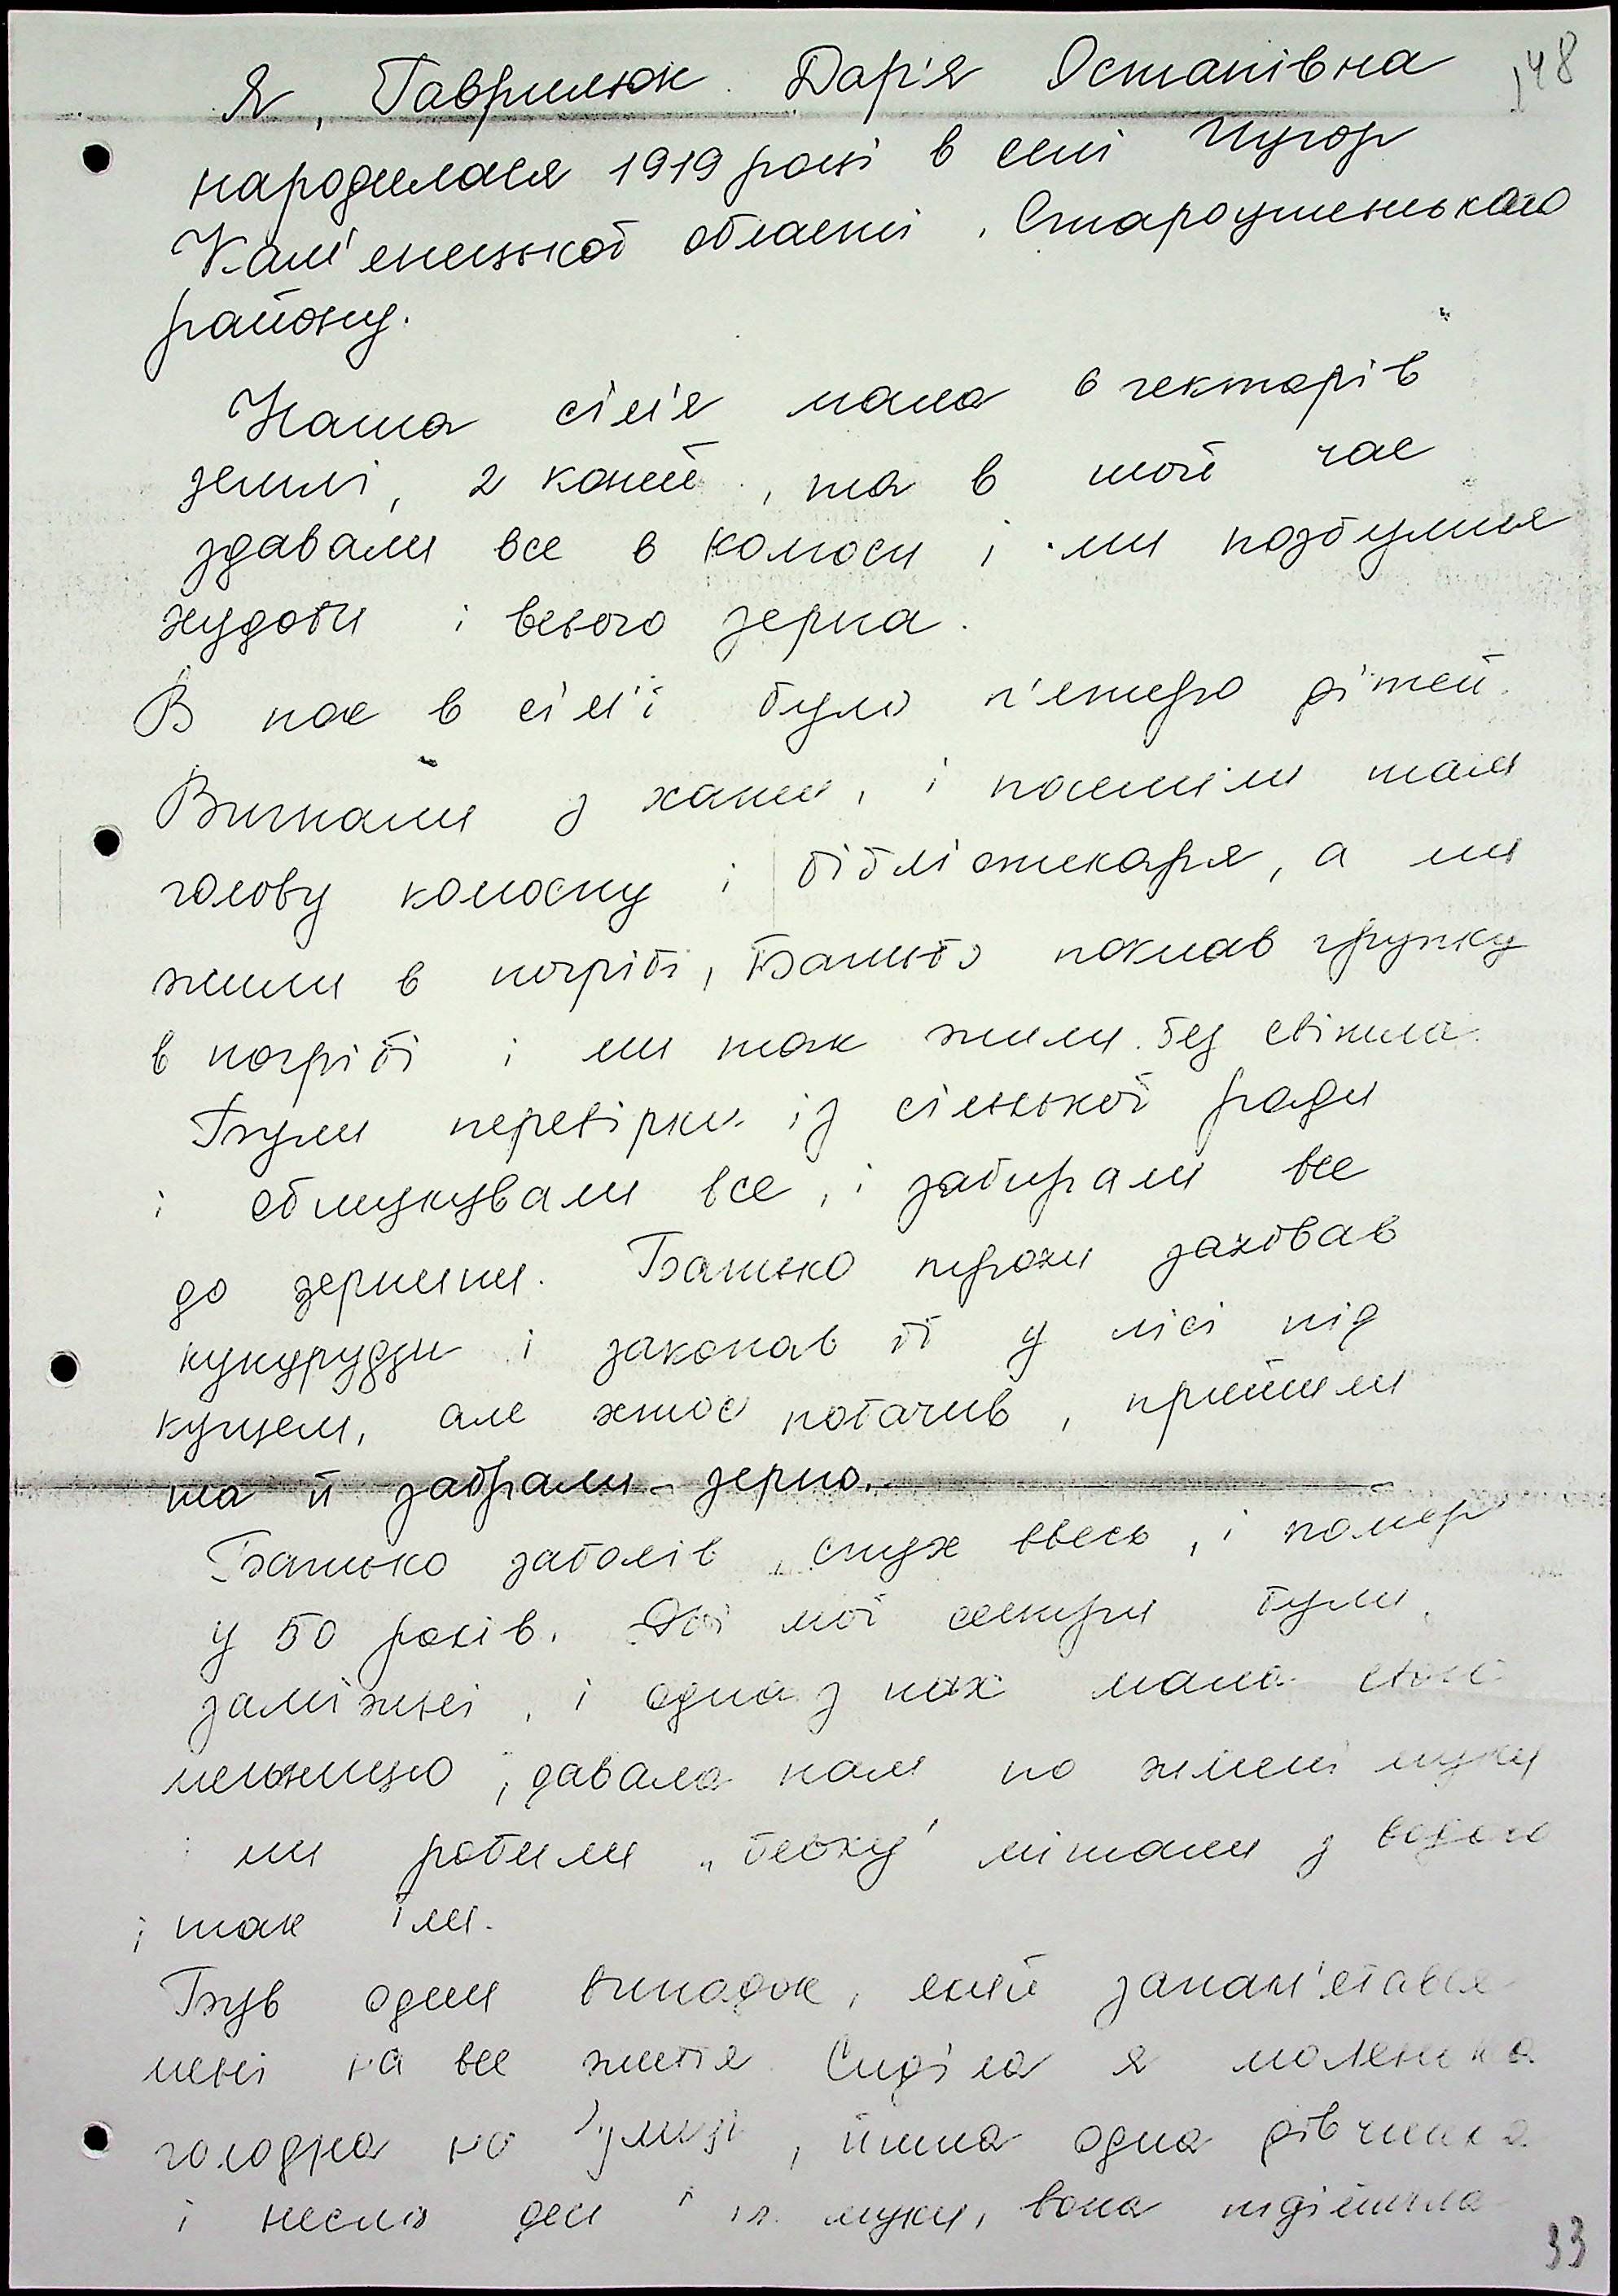 148
Я, Гаврилюк Дар'я Остапівна
народилася 1919 році в селі Чугор
Кам'енецької області, Староушенського
району.
Наша сім'я мала 6 гектарів
землі, 2 коней, та в той час
здавали все в колгосп і ми позбулися
худоби і всього зерна.
В нас в сім'ї було п'ятеро дітей.
Вигнали з хати, і поселили там
голову колгоспу і бібліотекаря, а ми
жили в погрібі, Батько поклав грубку
в погрібі і ми так жили без світла.
Були перевірки із сільської ради
і обшукували все, і забирали все
до зернини. Батько трохи заховав
кукурудзи і закопав її у лісі під
кущем, але хтось побачив, прийшли
та й забрали зерно.
Батько заболів, спух ввесь, і помер
у 50 років. Дві мої сестри були
заміжні, і одна з них мала свою
мельницю, давала нам по жмені муки
і ми робили „бевку" мішали з водою
і так їли.
Був один випадок, який запам'ятався
мені на все життя. Сиділа я маленька
голодна на вулиці, йшла одна дівчинка
і несла муки, вона підійшла
33